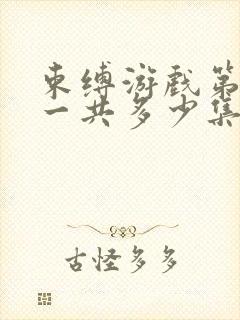 束缚游戏第
一共多少集
古怪多多